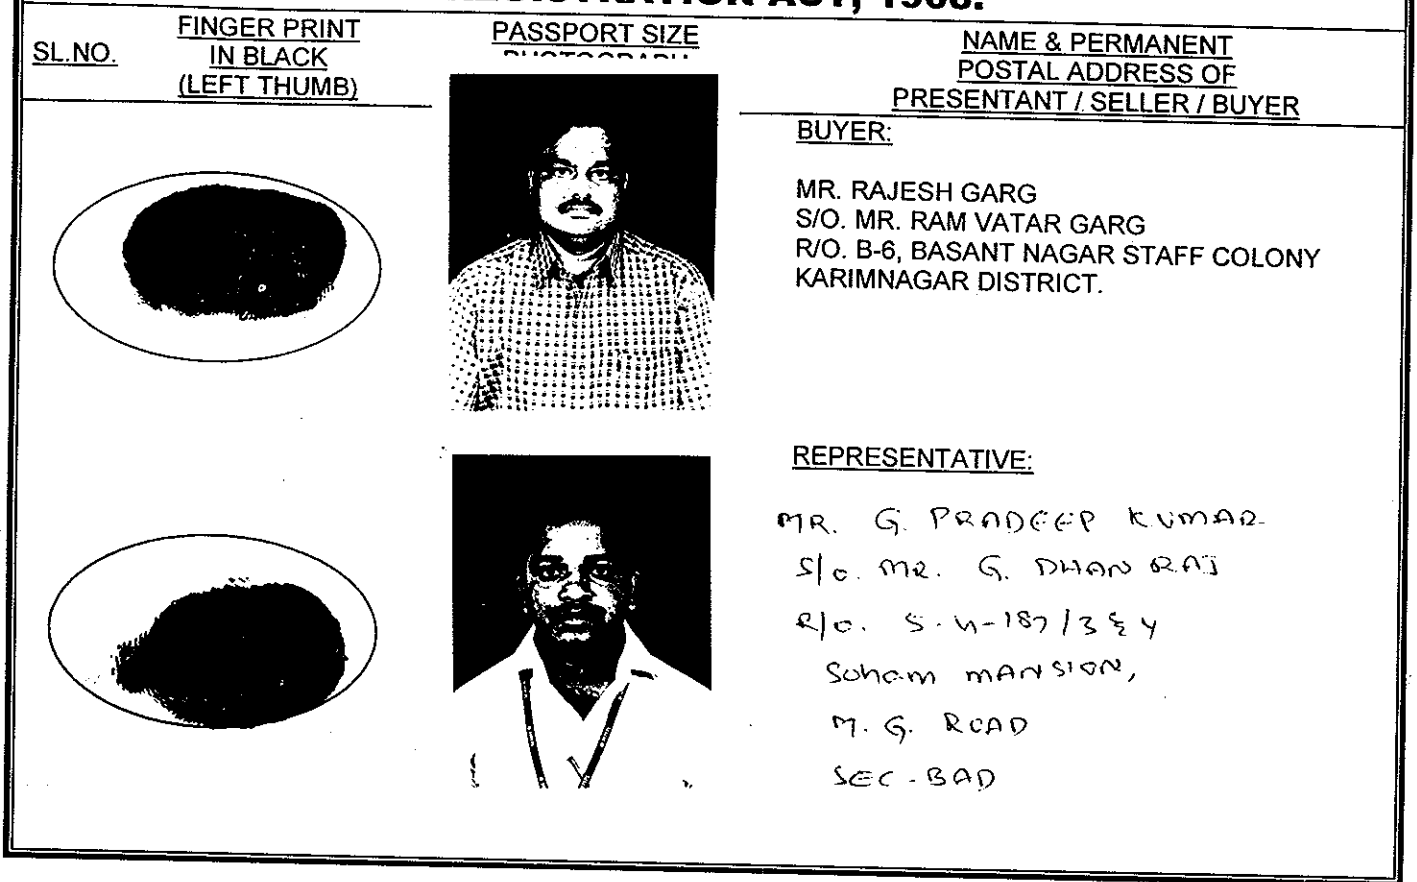 REGISTRATION ACT, 1908.
SL.NO.
FINGER PRINT
IN BLACK
(LEFT THUMB)
PASSPORT SIZE
PHOTOGRAPH
NAME & PERMANENT
POSTAL ADDRESS OF
PRESENTANT / SELLER / BUYER
BUYER:
MR. RAJESH GARG
S/O. MR. RAM VATAR GARG
R/O. B-6, BASANT NAGAR STAFF COLONY
KARIMNAGAR DISTRICT.
REPRESENTATIVE:
MR. G. PRADEEP KUMAR
S/o. MR. G. DHAN RAJ
R/o. 5-4-187/3 & 4
Soham MANSION,
M. G. ROAD
SEC-BAD